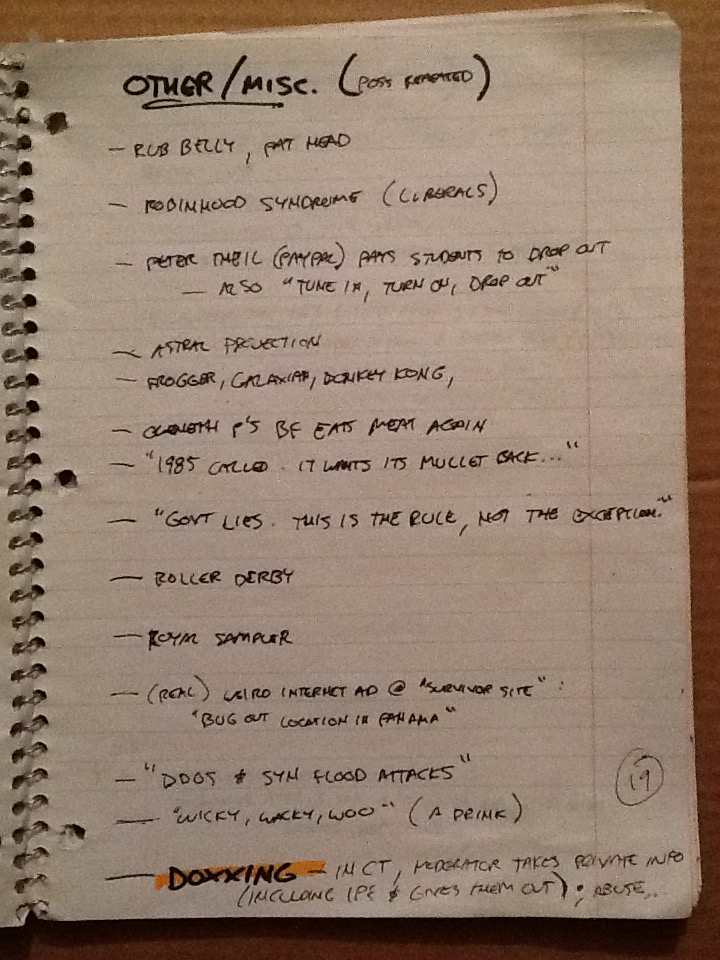 OTHER/MISC. (POSS REPEATED)
— RUB BELLY, PAT HEAD
— ROBINHOOD SYNDROME (LIBERALS)
— PETER THEIL (PAYPAL) PAYS STUDENTS TO DROP OUT
— ALSO "TUNE IN, TURN ON, DROP OUT"
— ASTRAL PROJECTION
— FROGGER, GALAXIAN, DONKEY KONG,
— P'S BF EATS MEAT AGAIN
— "1985 CALLED. IT WANTS ITS MULLET BACK..."
— "GOVT LIES. THIS IS THE RULE, NOT THE EXCEPTION."
— ROLLER DERBY
— ROYAL SAMPLER
— (REAL) WEIRD INTERNET AD @ "SURVIVOR SITE":
"BUG OUT LOCATION IN PANAMA"
— "DDOS & SYN FLOOD ATTACKS"
19
— "WICKY, WACKY, WOO" (A DRINK)
— DOXXING — IN CT, MODERATOR TAKES PRIVATE INFO
(INCLUDING IPS & GIVES THEM OUT); ABUSE...